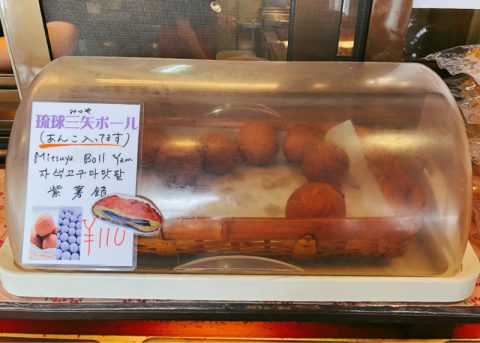 みつや
琉球三矢ボール
(あんこ入ってます)
Mitsuya Boll Yam
자색고구마맛탕
紫薯餡
¥110